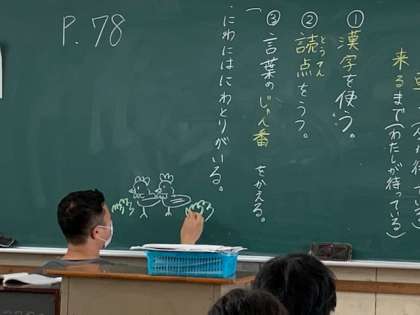 来るまで(わたしが待っている)
①漢字を使う。
②読点をうつ。
とうてん
③言葉のじゅん番をかえる。
にわにはにわとりがいる。
P.78